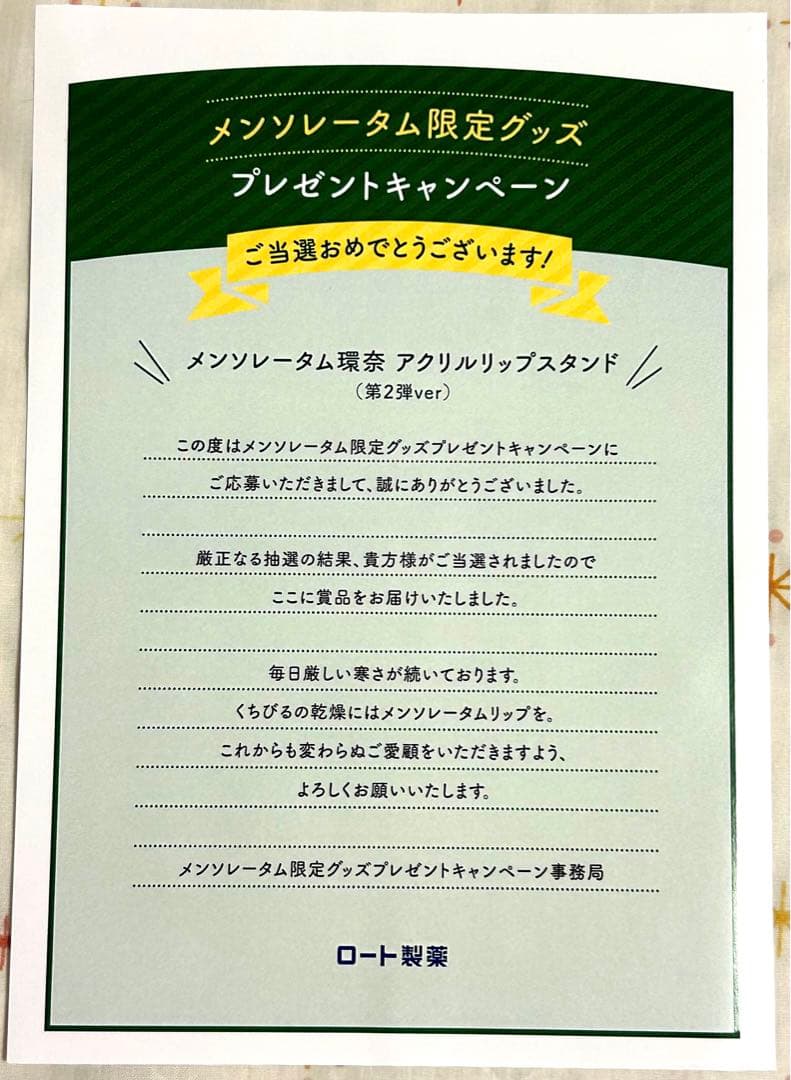 メンソレータム限定グッズ
プレゼントキャンペーン
ご当選おめでとうございます!
メンソレータム環奈 アクリルリップスタンド
(第2弾ver)
この度はメンソレータム限定グッズプレゼントキャンペーンに
ご応募いただきまして、誠にありがとうございました。
厳正なる抽選の結果、貴方様がご当選されましたので
ここに賞品をお届けいたしました。
毎日厳しい寒さが続いております。
くちびるの乾燥にはメンソレータムリップを。
これからも変わらぬご愛顧をいただきますよう、
よろしくお願いいたします。
メンソレータム限定グッズプレゼントキャンペーン事務局
ロート製薬